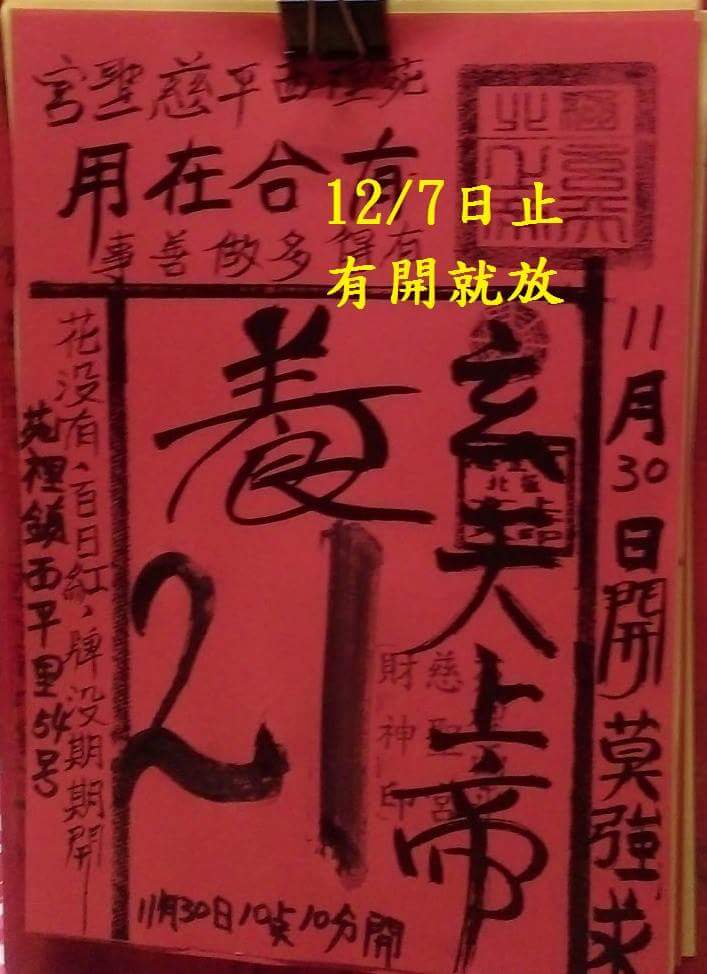 苑裡西平慈聖宮
有合在用
有得多做善事
12/7日止
有開就放
11月30日開莫強求
玄天上帝
慈聖宮
財神印
養
21
花没有、百日紅、牌没期期開
苑裡鎮西平里54号
11月30日10点10分開